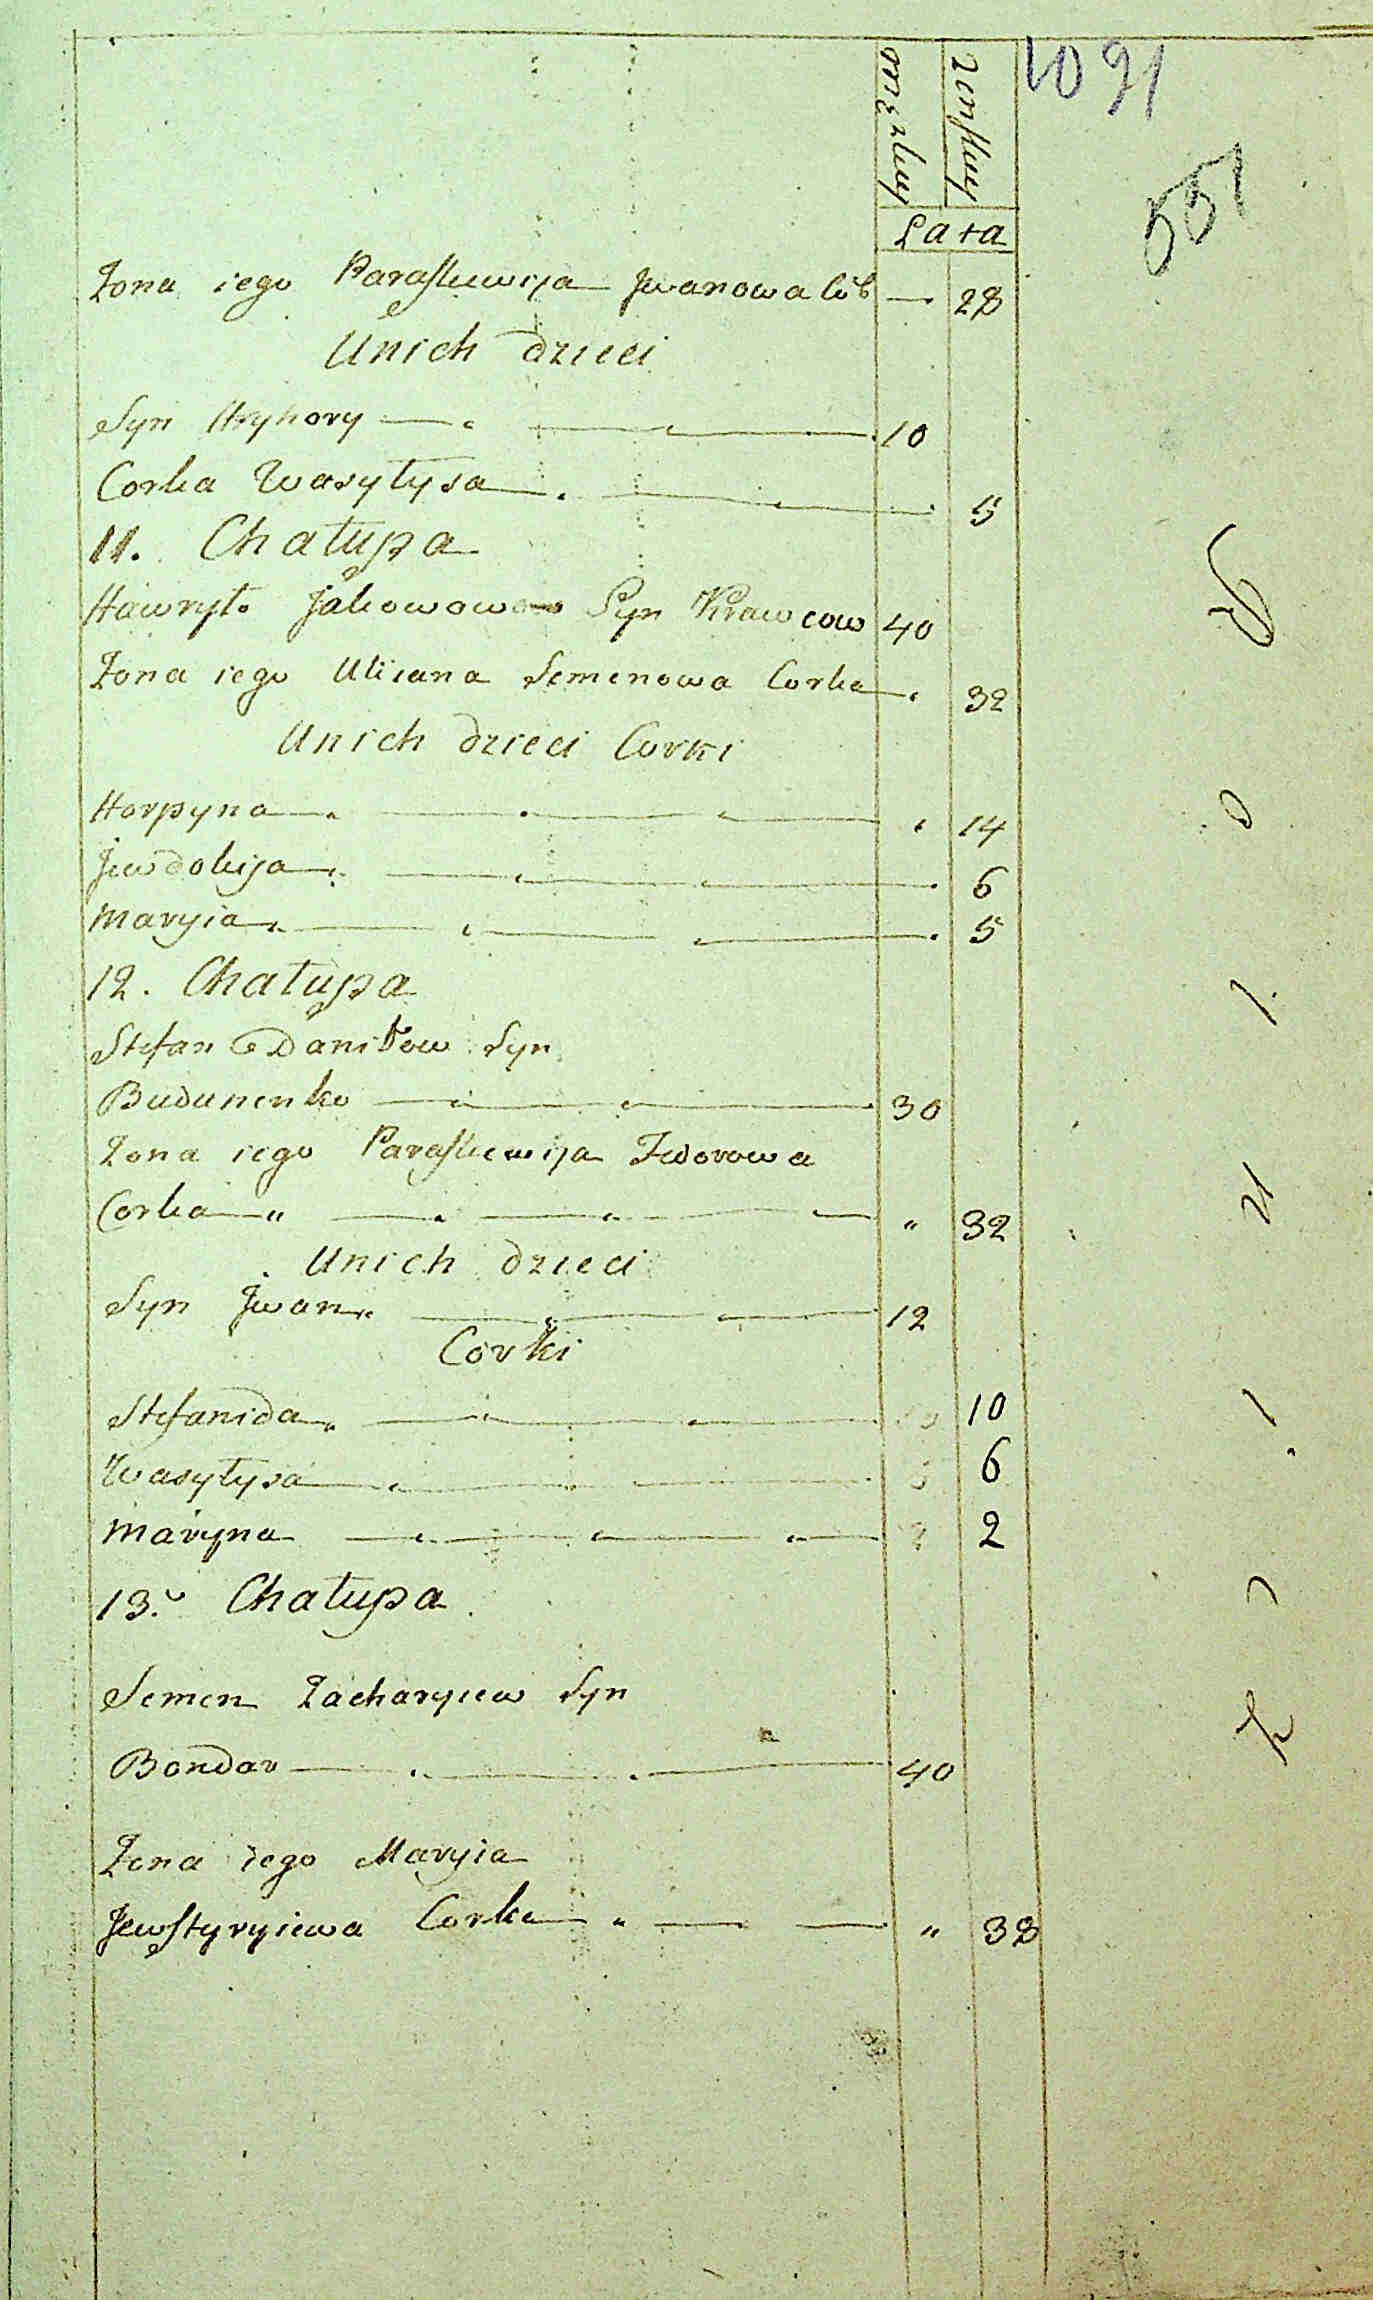 1091
551
męzkey żenskey
Lata
Żona iego Paraskiewija Iwanowa Cor — 28
U nich dzieci
Syn Hryhory — 10
Corka Wasyłysa — 5
11. Chałupa
Hawryło Jakowow Syn Krawcow 40
Żona iego Uliana Semenowa Corka — 32
U nich dzieci Corki
Horpyna — 14
Jewdokija — 6
Maryia — 5
12. Chałupa
Stefan Daniłow Syn
Budunenko — 30
Żona iego Paraskiewija Fedorowa
Corka — " 32
U nich dzieci
Syn Iwan — 12
Corki
Stefanida — 10
Wasyłysa — 6
Maryna — 2
13. Chałupa
Semen Zacharyiew Syn
Bondar — 40
Żona iego Maryia
Jewstyryiewa Corka " — " 38